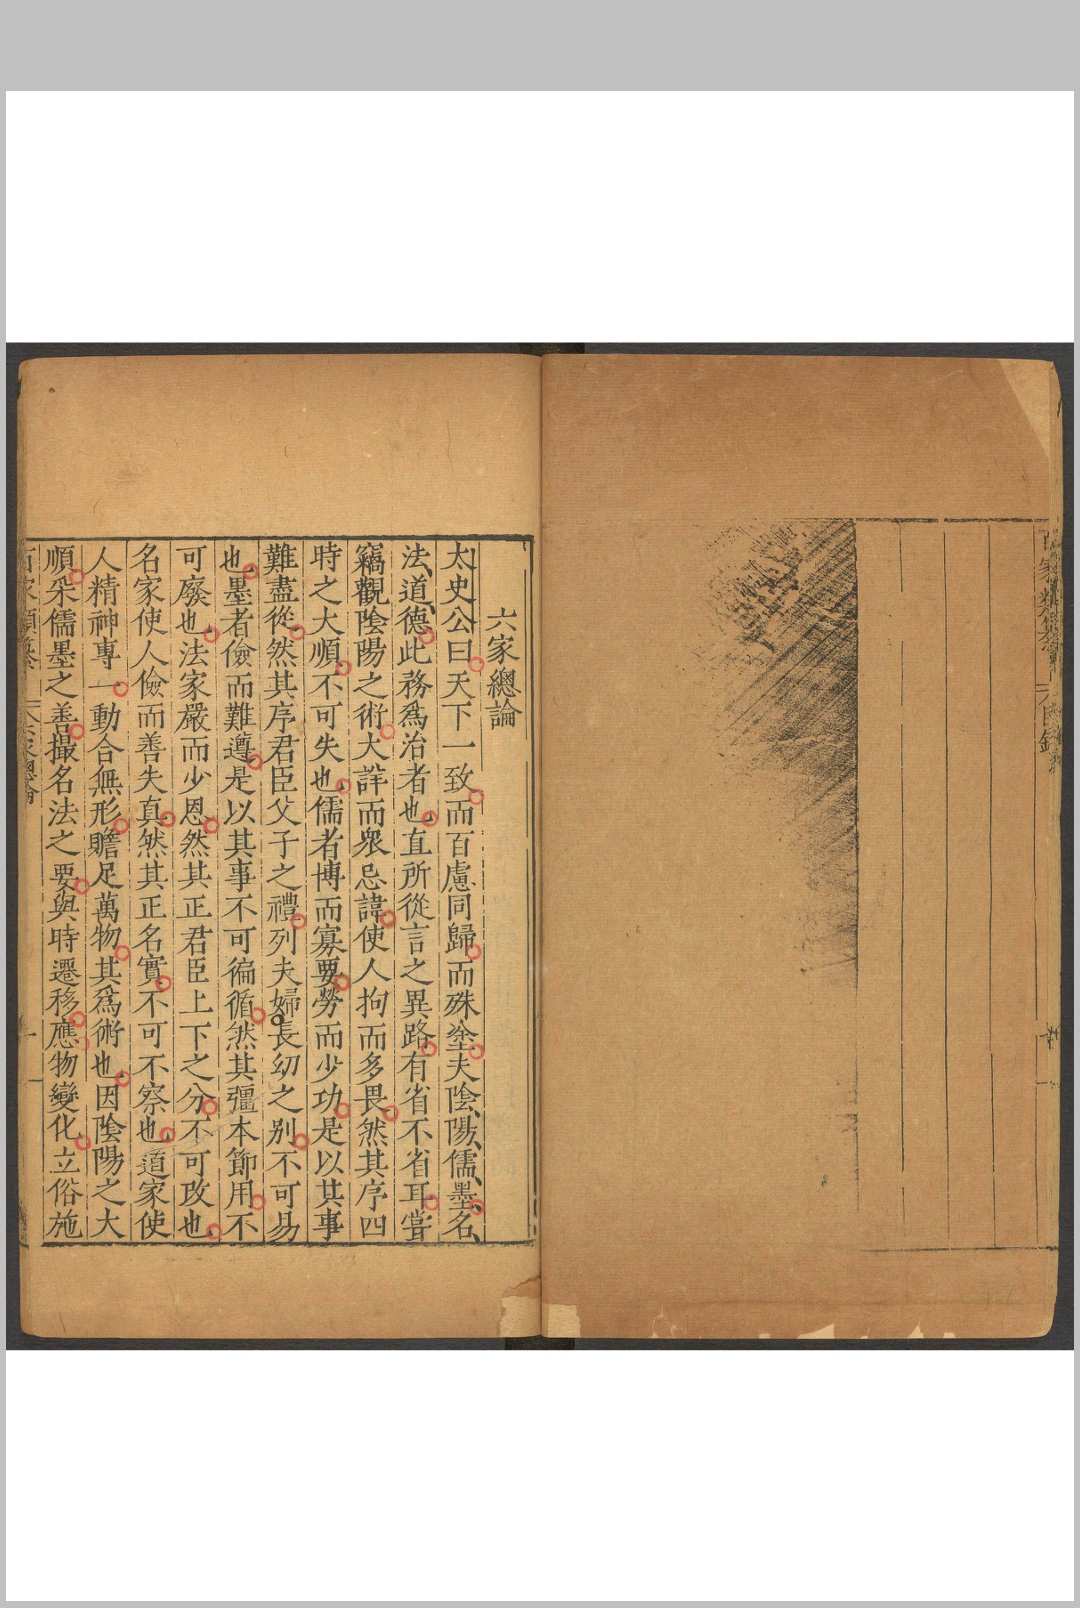 六家總論
太史公曰天下一致而百慮同歸而殊塗夫陰陽儒墨名
法道德此務爲治者也直所從言之異路有省不省耳嘗
竊觀陰陽之術大詳而衆忌諱使人拘而多畏然其序四
時之大順不可失也儒者博而寡要勞而少功是以其事
難盡從然其序君臣父子之禮列夫婦長幼之别不可易
也墨者儉而難遵是以其事不可徧循然其彊本節用不
可廢也法家嚴而少恩然其正君臣上下之分不可攻也
名家使人儉而善失真然其正名實不可不察也道家使
人精神專一動合無形贍足萬物其爲術也因陰陽之大
順采儒墨之善撮名法之要與時遷移應物變化立俗施
百家類纂 六家總論 一